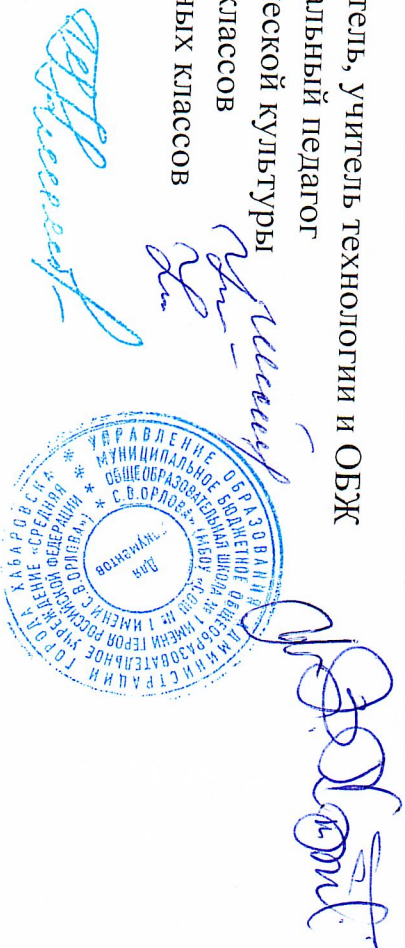 тель, учитель технологии и ОБЖ
альный педагог
еской культуры
классов
ных классов
УПРАВЛЕНИЕ ОБРАЗОВАНИЯ АДМИНИСТРАЦИИ ГОРОДА ХАБАРОВСКА *
МУНИЦИПАЛЬНОЕ БЮДЖЕТНОЕ ОБЩЕОБРАЗОВАТЕЛЬНОЕ УЧРЕЖДЕНИЕ «СРЕДНЯЯ *
ОБЩЕОБРАЗОВАТЕЛЬНАЯ ШКОЛА № 1 ИМЕНИ ГЕРОЯ РОССИЙСКОЙ ФЕДЕРАЦИИ *
С.В.ОРЛОВА» (МБОУ «СОШ № 1 ИМЕНИ С.В.ОРЛОВА»)
Для
документов